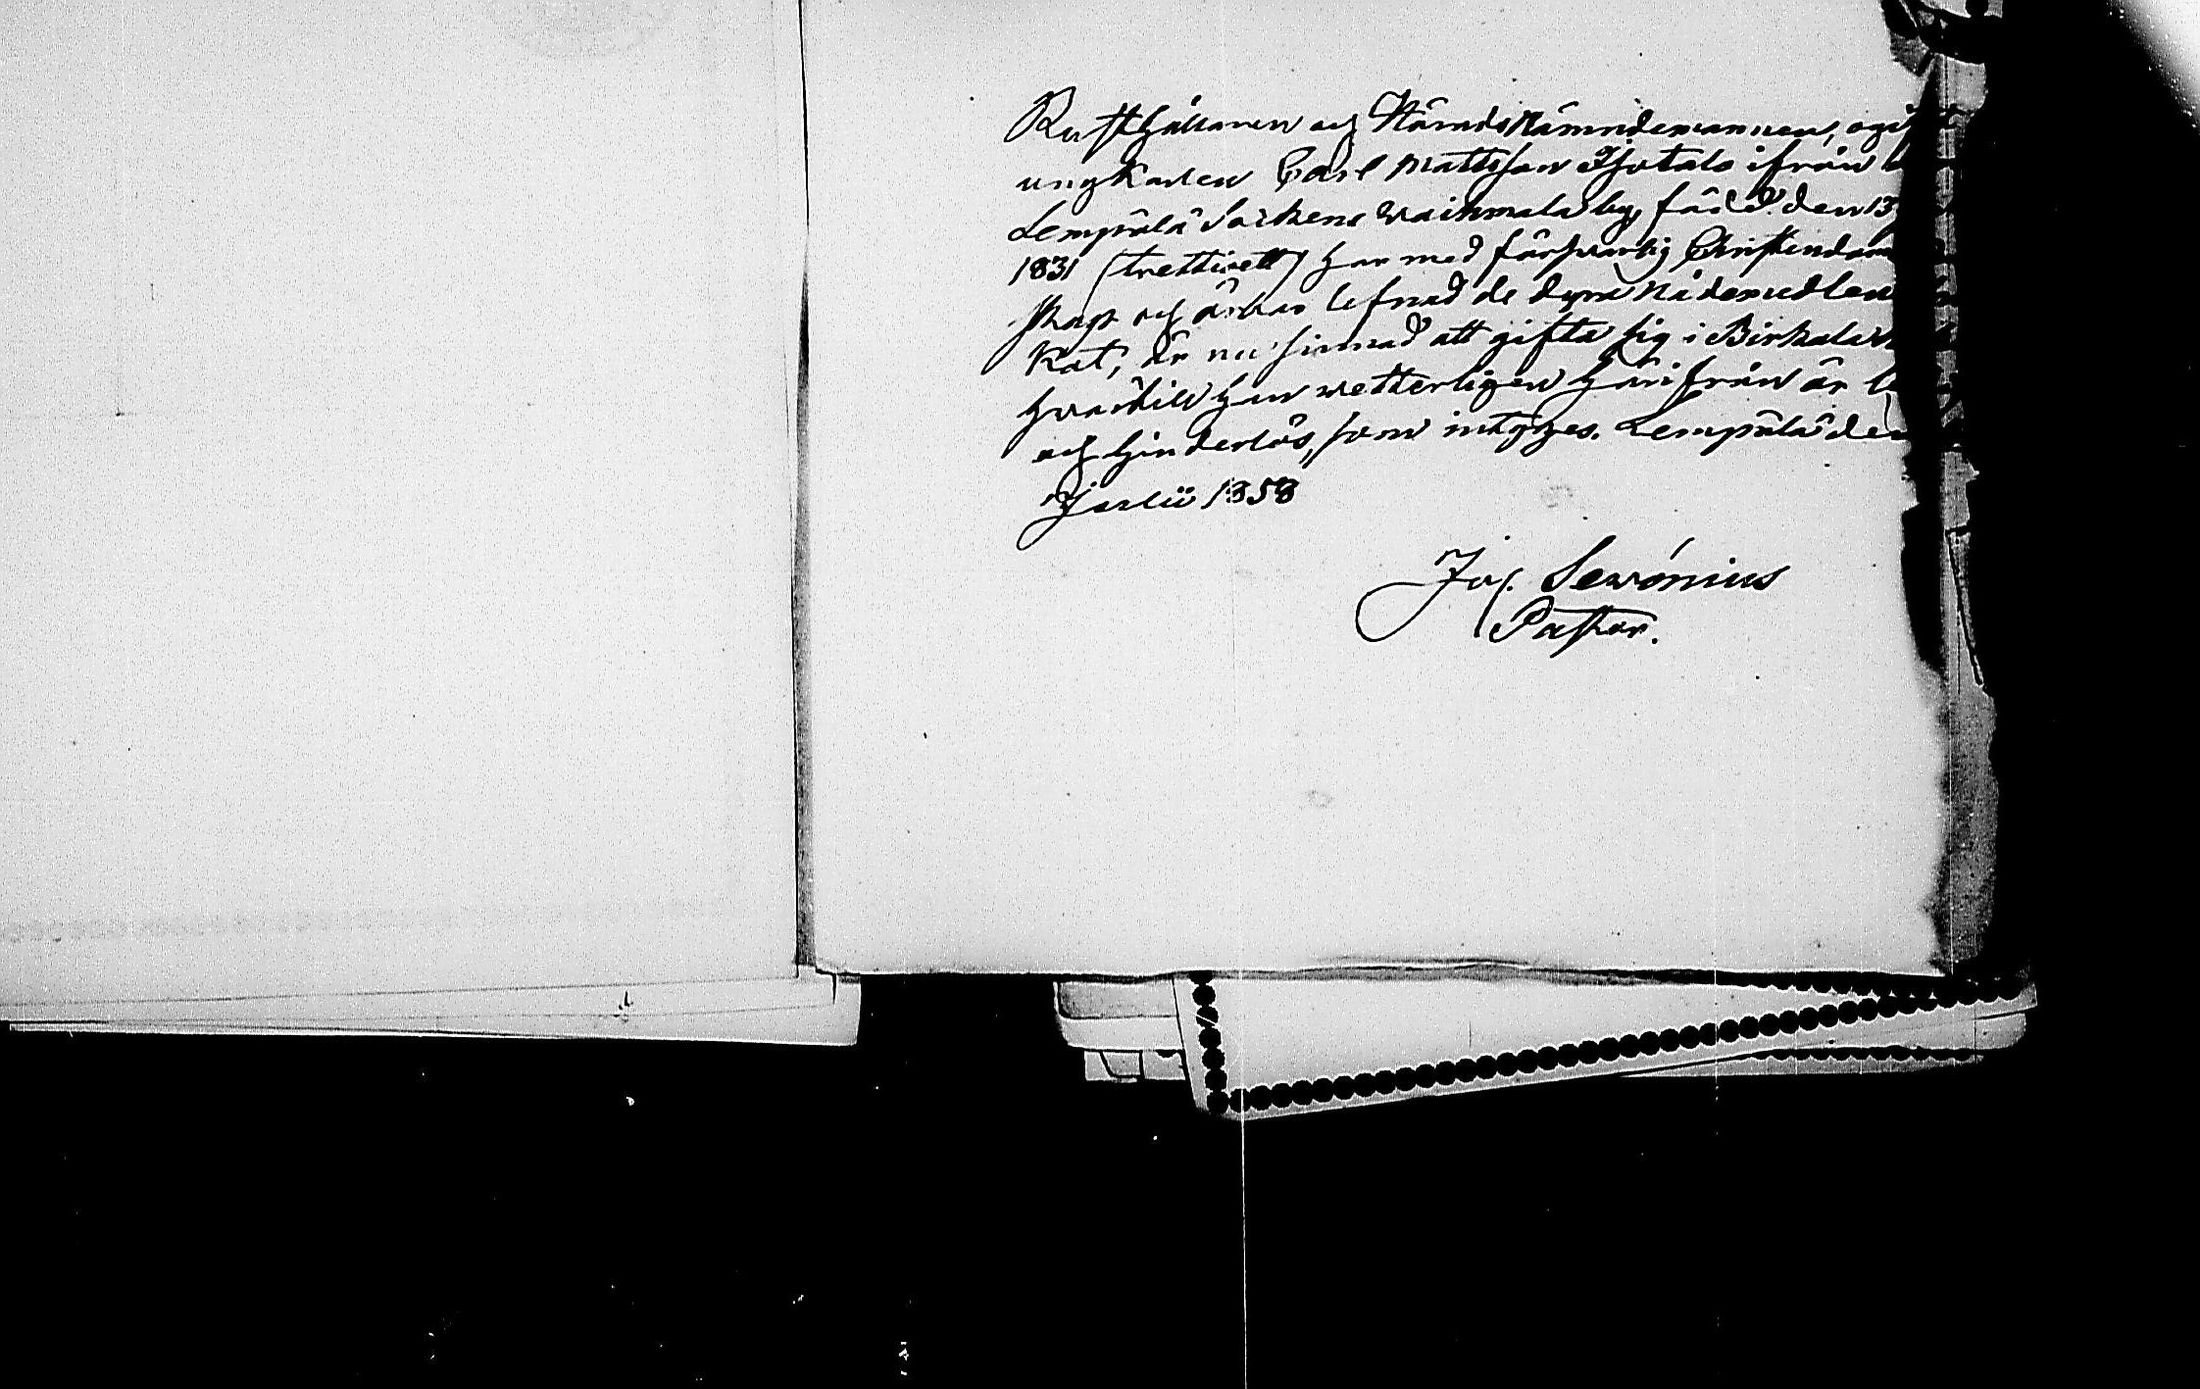 Rusthållaren och HäradsNämndemannen, ogi
ungkarlen Carl Mattsson Isotalo ifrån
Lempälä Sockens Waihmala by, född den 13
1831 (trettioett) har med försvarlig Christendom
skap och ärbar lefnad de dyra Nådemedlen
kat, är nu sinnad att gifta sig i Birkala
hvartill han wetterligen härifrån är le
och hinderlös, som intygas. Lempälä den
Julii 1858
Jos. Sewónius
Pastor.